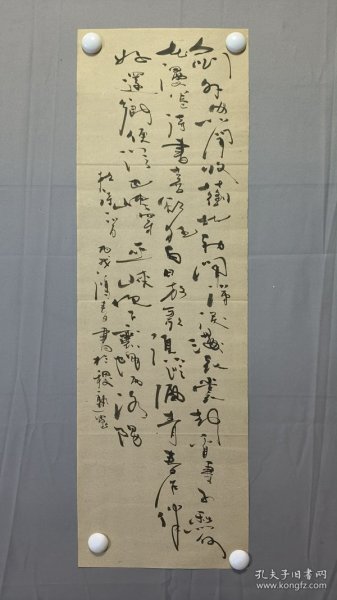 外忽闻收蓟北初闻涕泪满衣裳却看妻子愁何
在漫卷诗书喜欲狂白日放歌须纵酒青春作伴
好還鄉從巴峽穿巫峽便下襄陽向洛陽
杜诗一首
孔夫子旧书网
www.kongfz.com